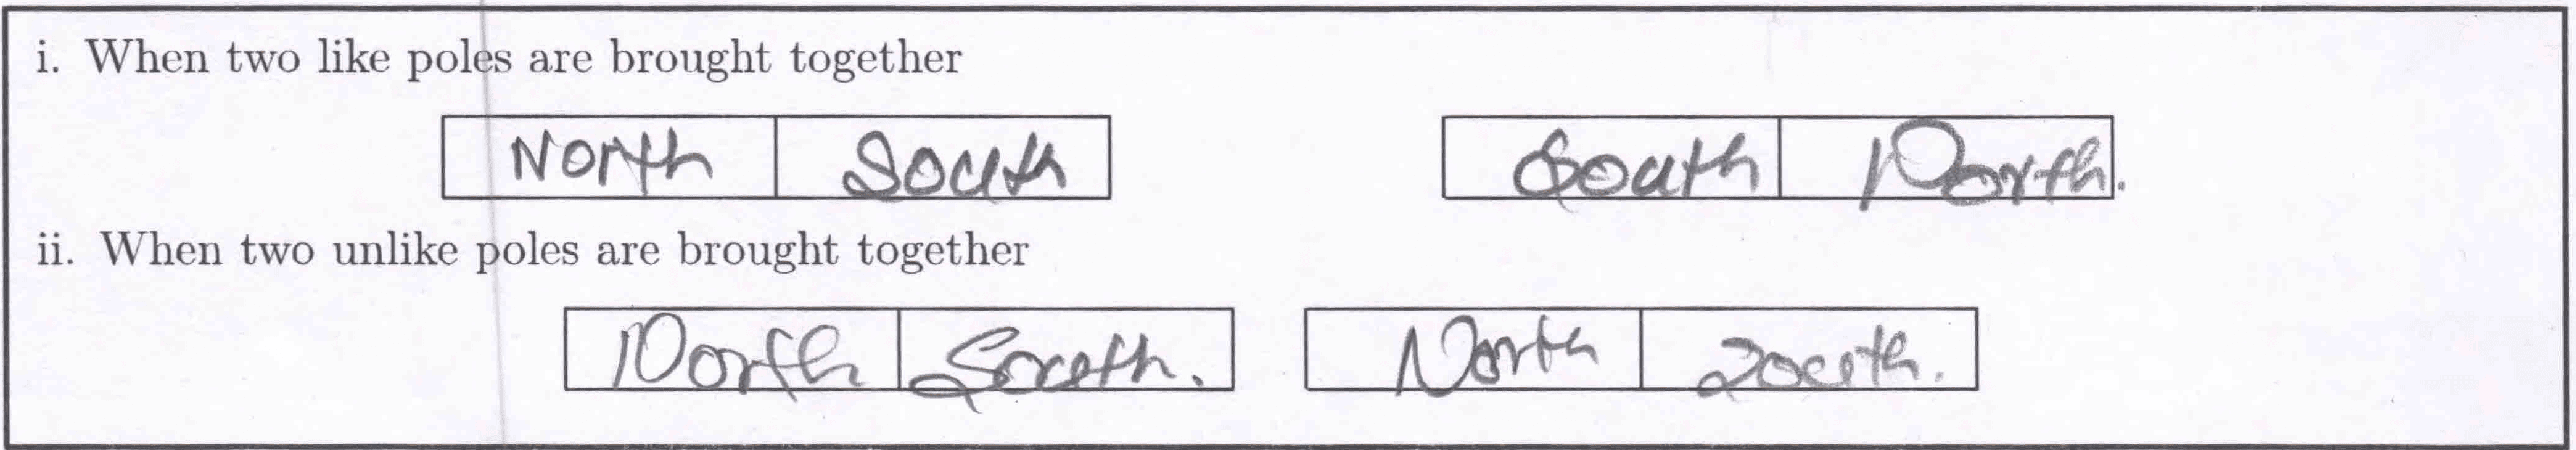 i. When two like poles are brought together
North South South North.
ii. When two unlike poles are brought together
North South. North South.